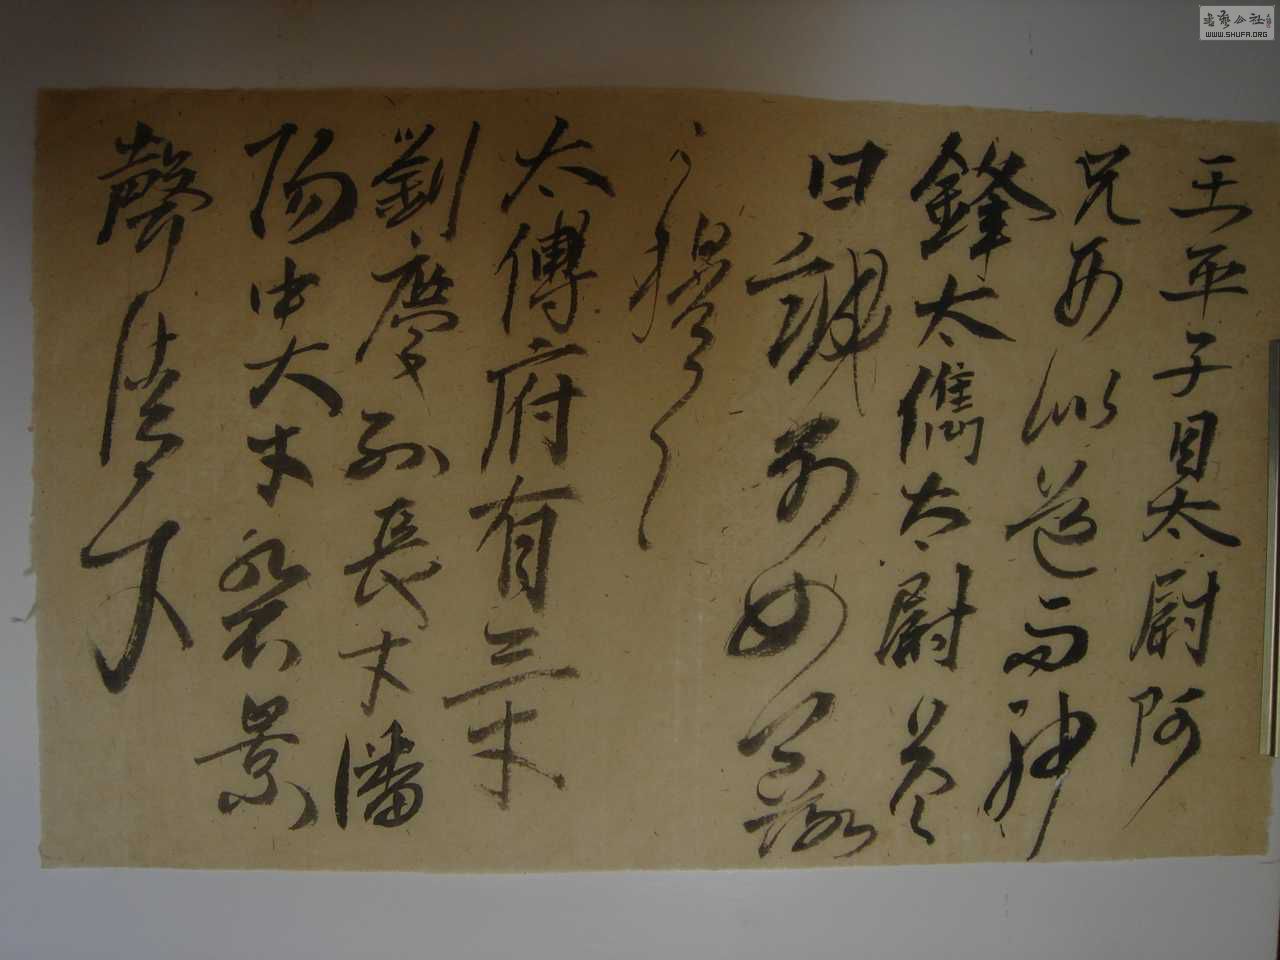 王平子目太尉阿
兄形似道而神
鋒太儁太尉答
曰誠不如卿落
々穆々
太傅府有三才
劉慶孫長才潘
陽中大才裴景
聲清才
書藝公社
WWW.SHUFA.ORG